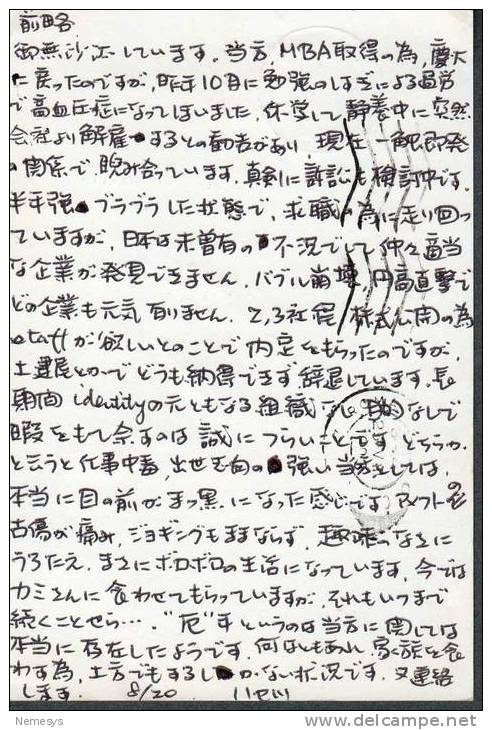 前略
御無沙汰しています。当方、MBA取得の為、慶大
に戻ったのですが、昨年10月に勉強のしすぎによる過労
で高血圧症になってしまいました。休学して静養中に突然
会社より解雇するとの勧告があり、現在一触即発
の関係で睨み合っています。真剣に訴訟も検討中です。
半年強、ブラブラした状態で、求職の為に走り回っ
ていますが、日本は未曽有の不況でして仲々適当
な企業が発見できません。バブル崩壊、円高直撃で
どの企業も元気有りません。2,3社程 株式公開の為
staffが欲しいとのことで内定をもらったのですが、
土建屋とかでどうも納得できず辞退しています。長
期間identityの元ともなる組織なし、目的なしで
暇をもて余すのは誠につらいことです。どちらか
と云うと仕事中毒、出世志向の強い当方としては、
本当に目の前がまっ黒になった感じです。アメフトの
古傷が痛み、ジョギングもままならず、趣味のなさに
うろたえ、まさにボロボロの生活になっています。今では
カミさんに食わせてもらっていますが、それもいつまで
続くことやら…。"厄"年というのは当方に関しては
本当に存在したようです。何はともあれ、家族を食
わす為、土方でもするしかない状況です。又連絡
します。 8/20
Nemesys
delcampe.net